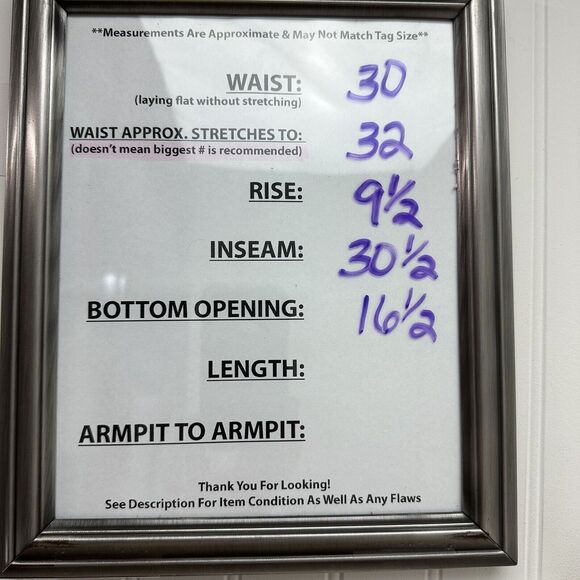 **Measurements Are Approximate & May Not Match Tag Size**
WAIST: 30
(laying flat without stretching)
WAIST APPROX. STRETCHES TO: 32
(doesn't mean biggest # is recommended)
RISE: 9 1/2
INSEAM: 30 1/2
BOTTOM OPENING: 16 1/2
LENGTH:
ARMPIT TO ARMPIT:
Thank You For Looking!
See Description For Item Condition As Well As Any Flaws